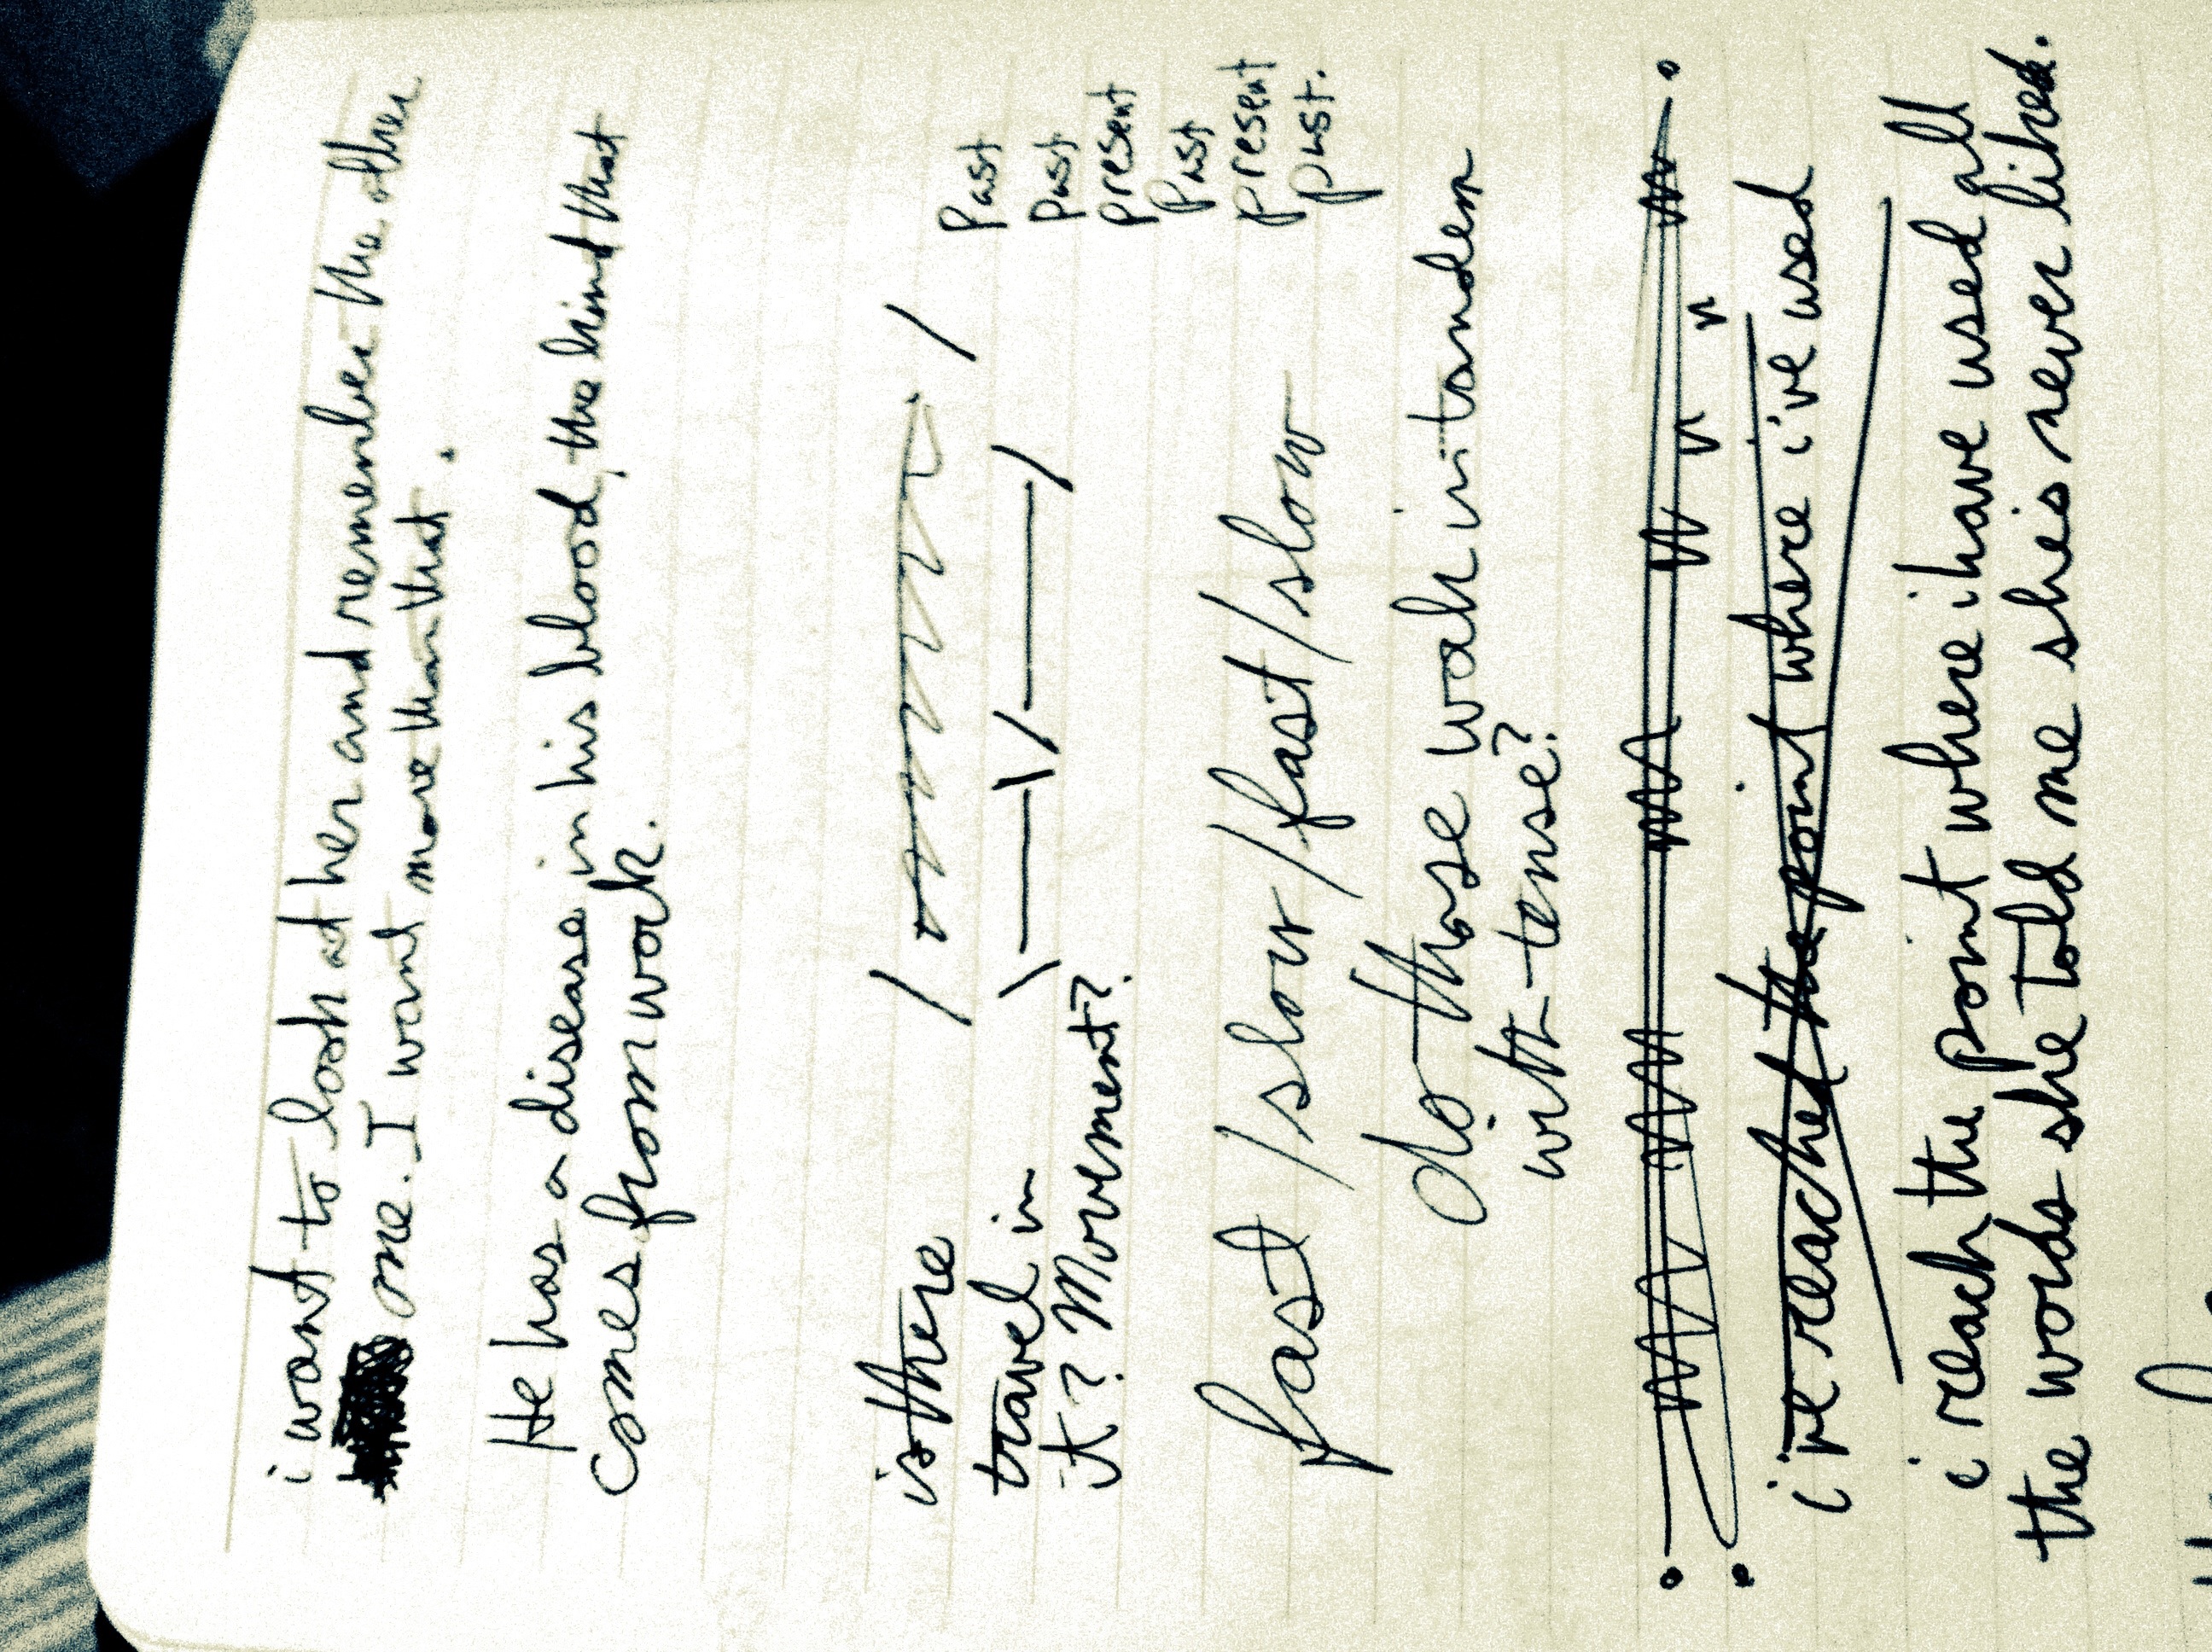 i want to look at her and remember the other
one. I want more than that.
He has a disease in his blood, the kind that
comes from work.
is there
travel in
it? Movement?
Past
Past
present
Past
present
past.
fast / slow / fast / slow
do those work in tandem
with tense?
i've reached the point where i've used
i reach the point where i have used all
the words she told me she is never liked.